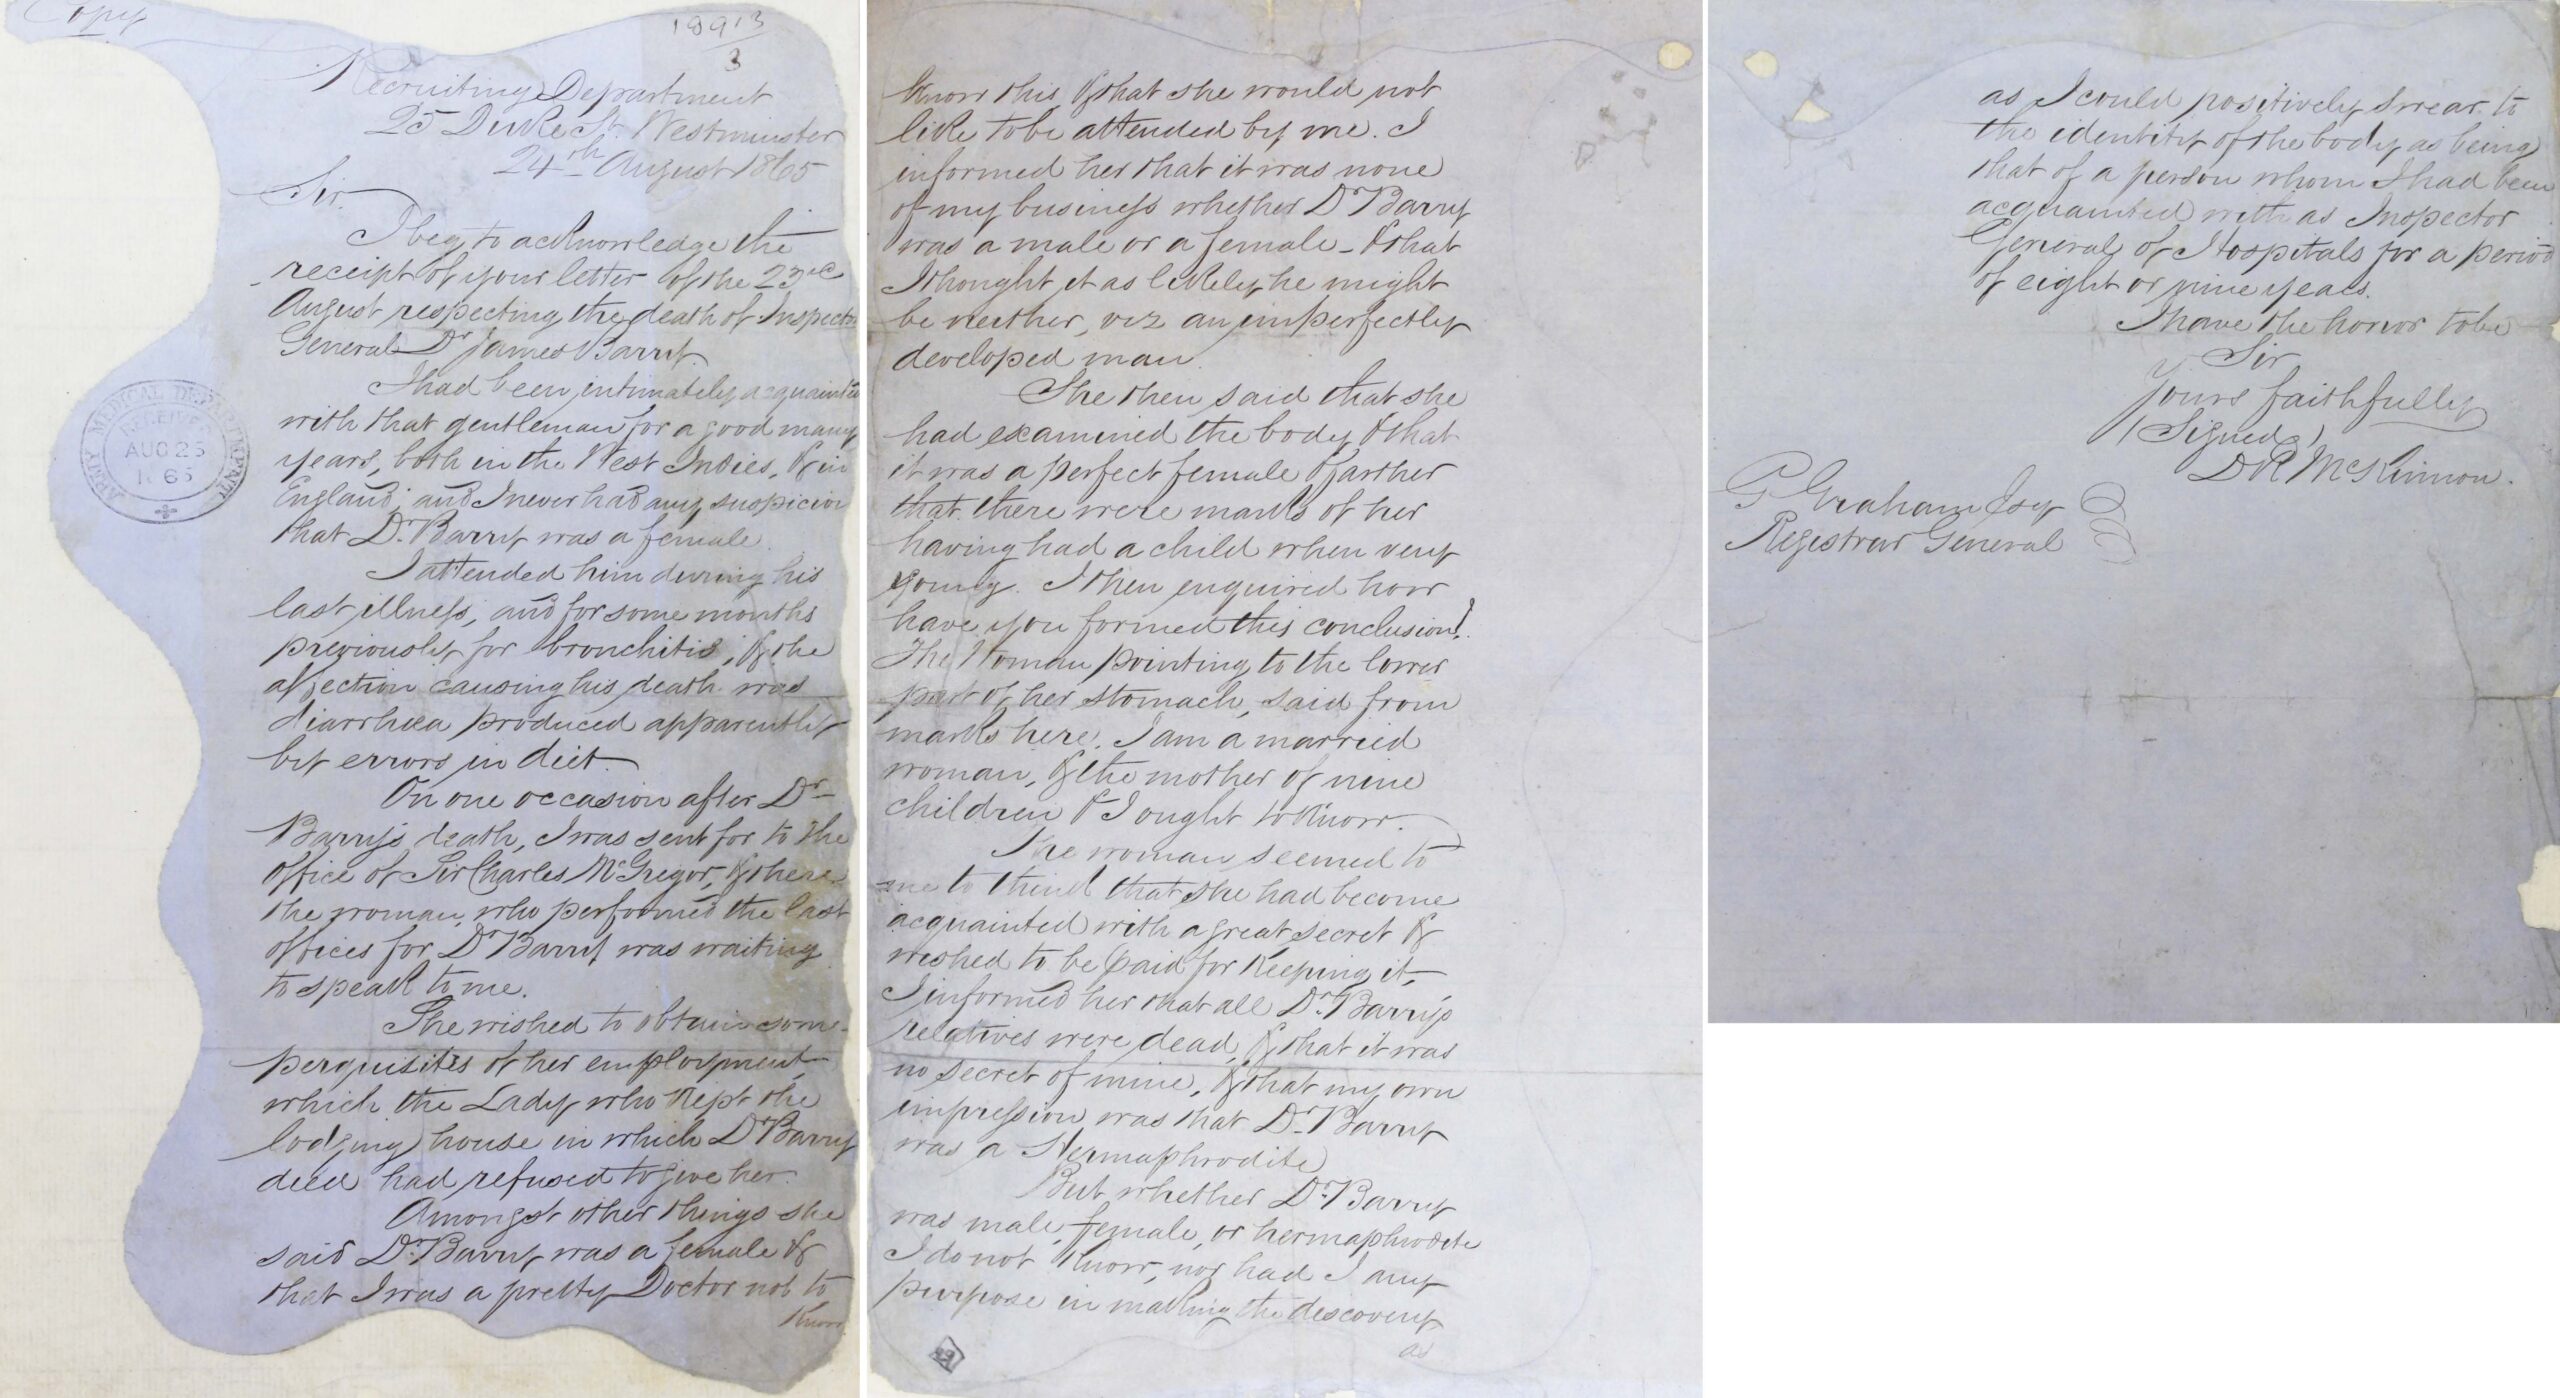 Copy
18913
3
Recruiting Department
25 Duke St. Westminster
24th August 1865
Sir.
I beg to acknowledge the
receipt of your letter of the 23rd
August respecting the death of Inspector
General Dr James Barry.
I had been intimately acquainted
with that gentleman for a good many
years, both in the West Indies, & in
England; and I never had any suspicion
that Dr. Barry was a female.
I attended him during his
last illness, and for some months
previously for bronchitis, & the
affection causing his death was
diarrhœa produced apparently
by errors in diet.
On one occasion after Dr
Barry's death, I was sent for to the
office of Sir Charles McGregor, & there
the woman who performed the last
offices for Dr Barry was waiting
to speak to me.
She wished to obtain some
perquisites of her employment
which the Lady who kept the
lodging house in which Dr Barry
died had refused to give her.
Amongst other things she
said Dr. Barry was a female &
that I was a pretty Doctor not to
know
ARMY MEDICAL DEPARTMENT
RECEIVED
AUG 25
1865
know this & that she would not
like to be attended by me. I
informed her that it was none
of my business whether Dr Barry
was a male or a female - & that
I thought it as likely he might
be neither, viz an imperfectly
developed man.
She then said that she
had examined the body & that
it was a perfect female & farther
that there were marks of her
having had a child when very
young. I then enquired how
have you formed this conclusion?
The Woman pointing to the lower
part of her stomach, said from
marks here. I am a married
woman, & the mother of nine
children & I ought to know.
The woman seemed to
me to think that she had become
acquainted with a great secret &
wished to be paid for keeping it,
I informed her that all Dr. Barry's
relatives were dead, & that it was
no secret of mine, & that my own
impression was that Dr. Barry
was a Hermaphrodite
But whether Dr. Barry
was male, female, or hermaphrodite
I do not know, nor had I any
purpose in making the discovery
as
as I could positively swear to
the identity of the body as being
that of a person whom I had been
acquainted with as Inspector
General of Hospitals for a period
of eight or nine years.
I have the honor to be
Sir
Yours faithfully
(Signed)
D R McKinnon.
G Graham Esq
Registrar General